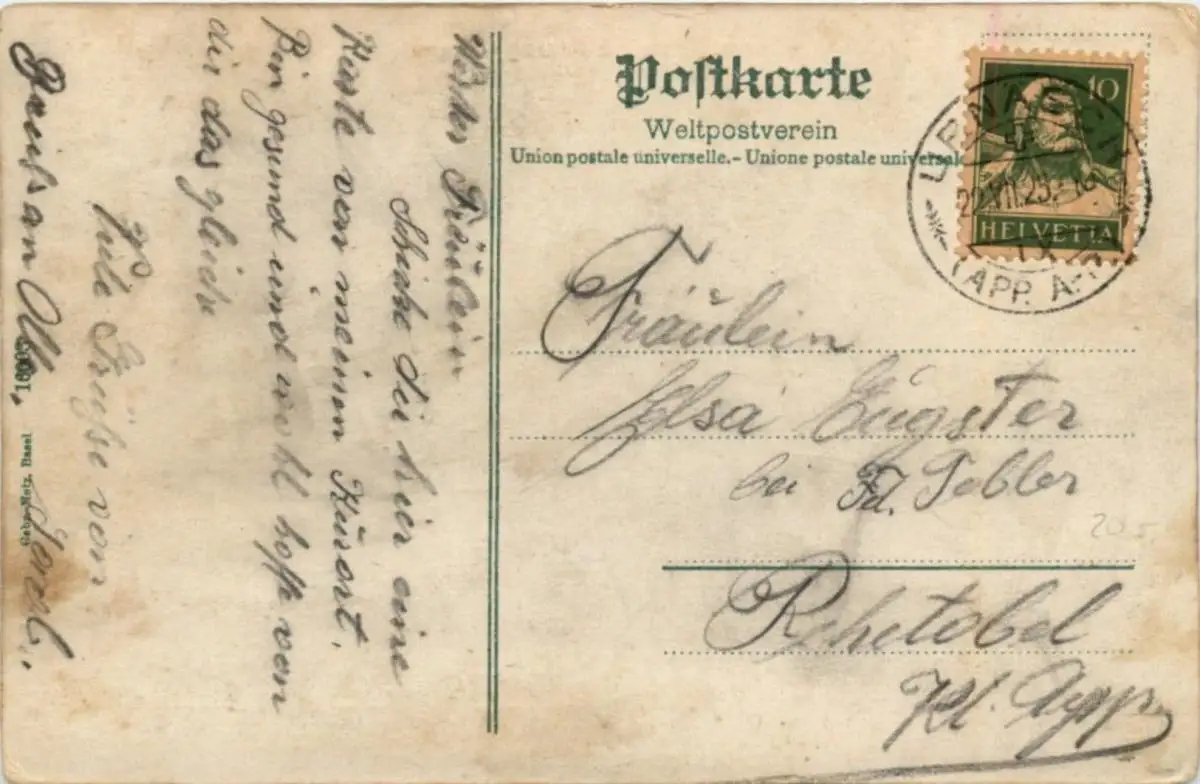 Postkarte
Weltpostverein
Union postale universelle. - Unione postale universale
10
HELVETIA
URNÄSCH
22.VII.23.
(APP. A.
Fräulein
Elsa Eugster
bei Fd. Tobler
Rehetobel
Kt. App.
20.5.
Fräulein
Schicke dir hier eine
Karte von meinem Kurort.
Bin gesund und wohl hoffe von
dir das gleiche
Viele Grüße von
Gebr. Metz, Basel